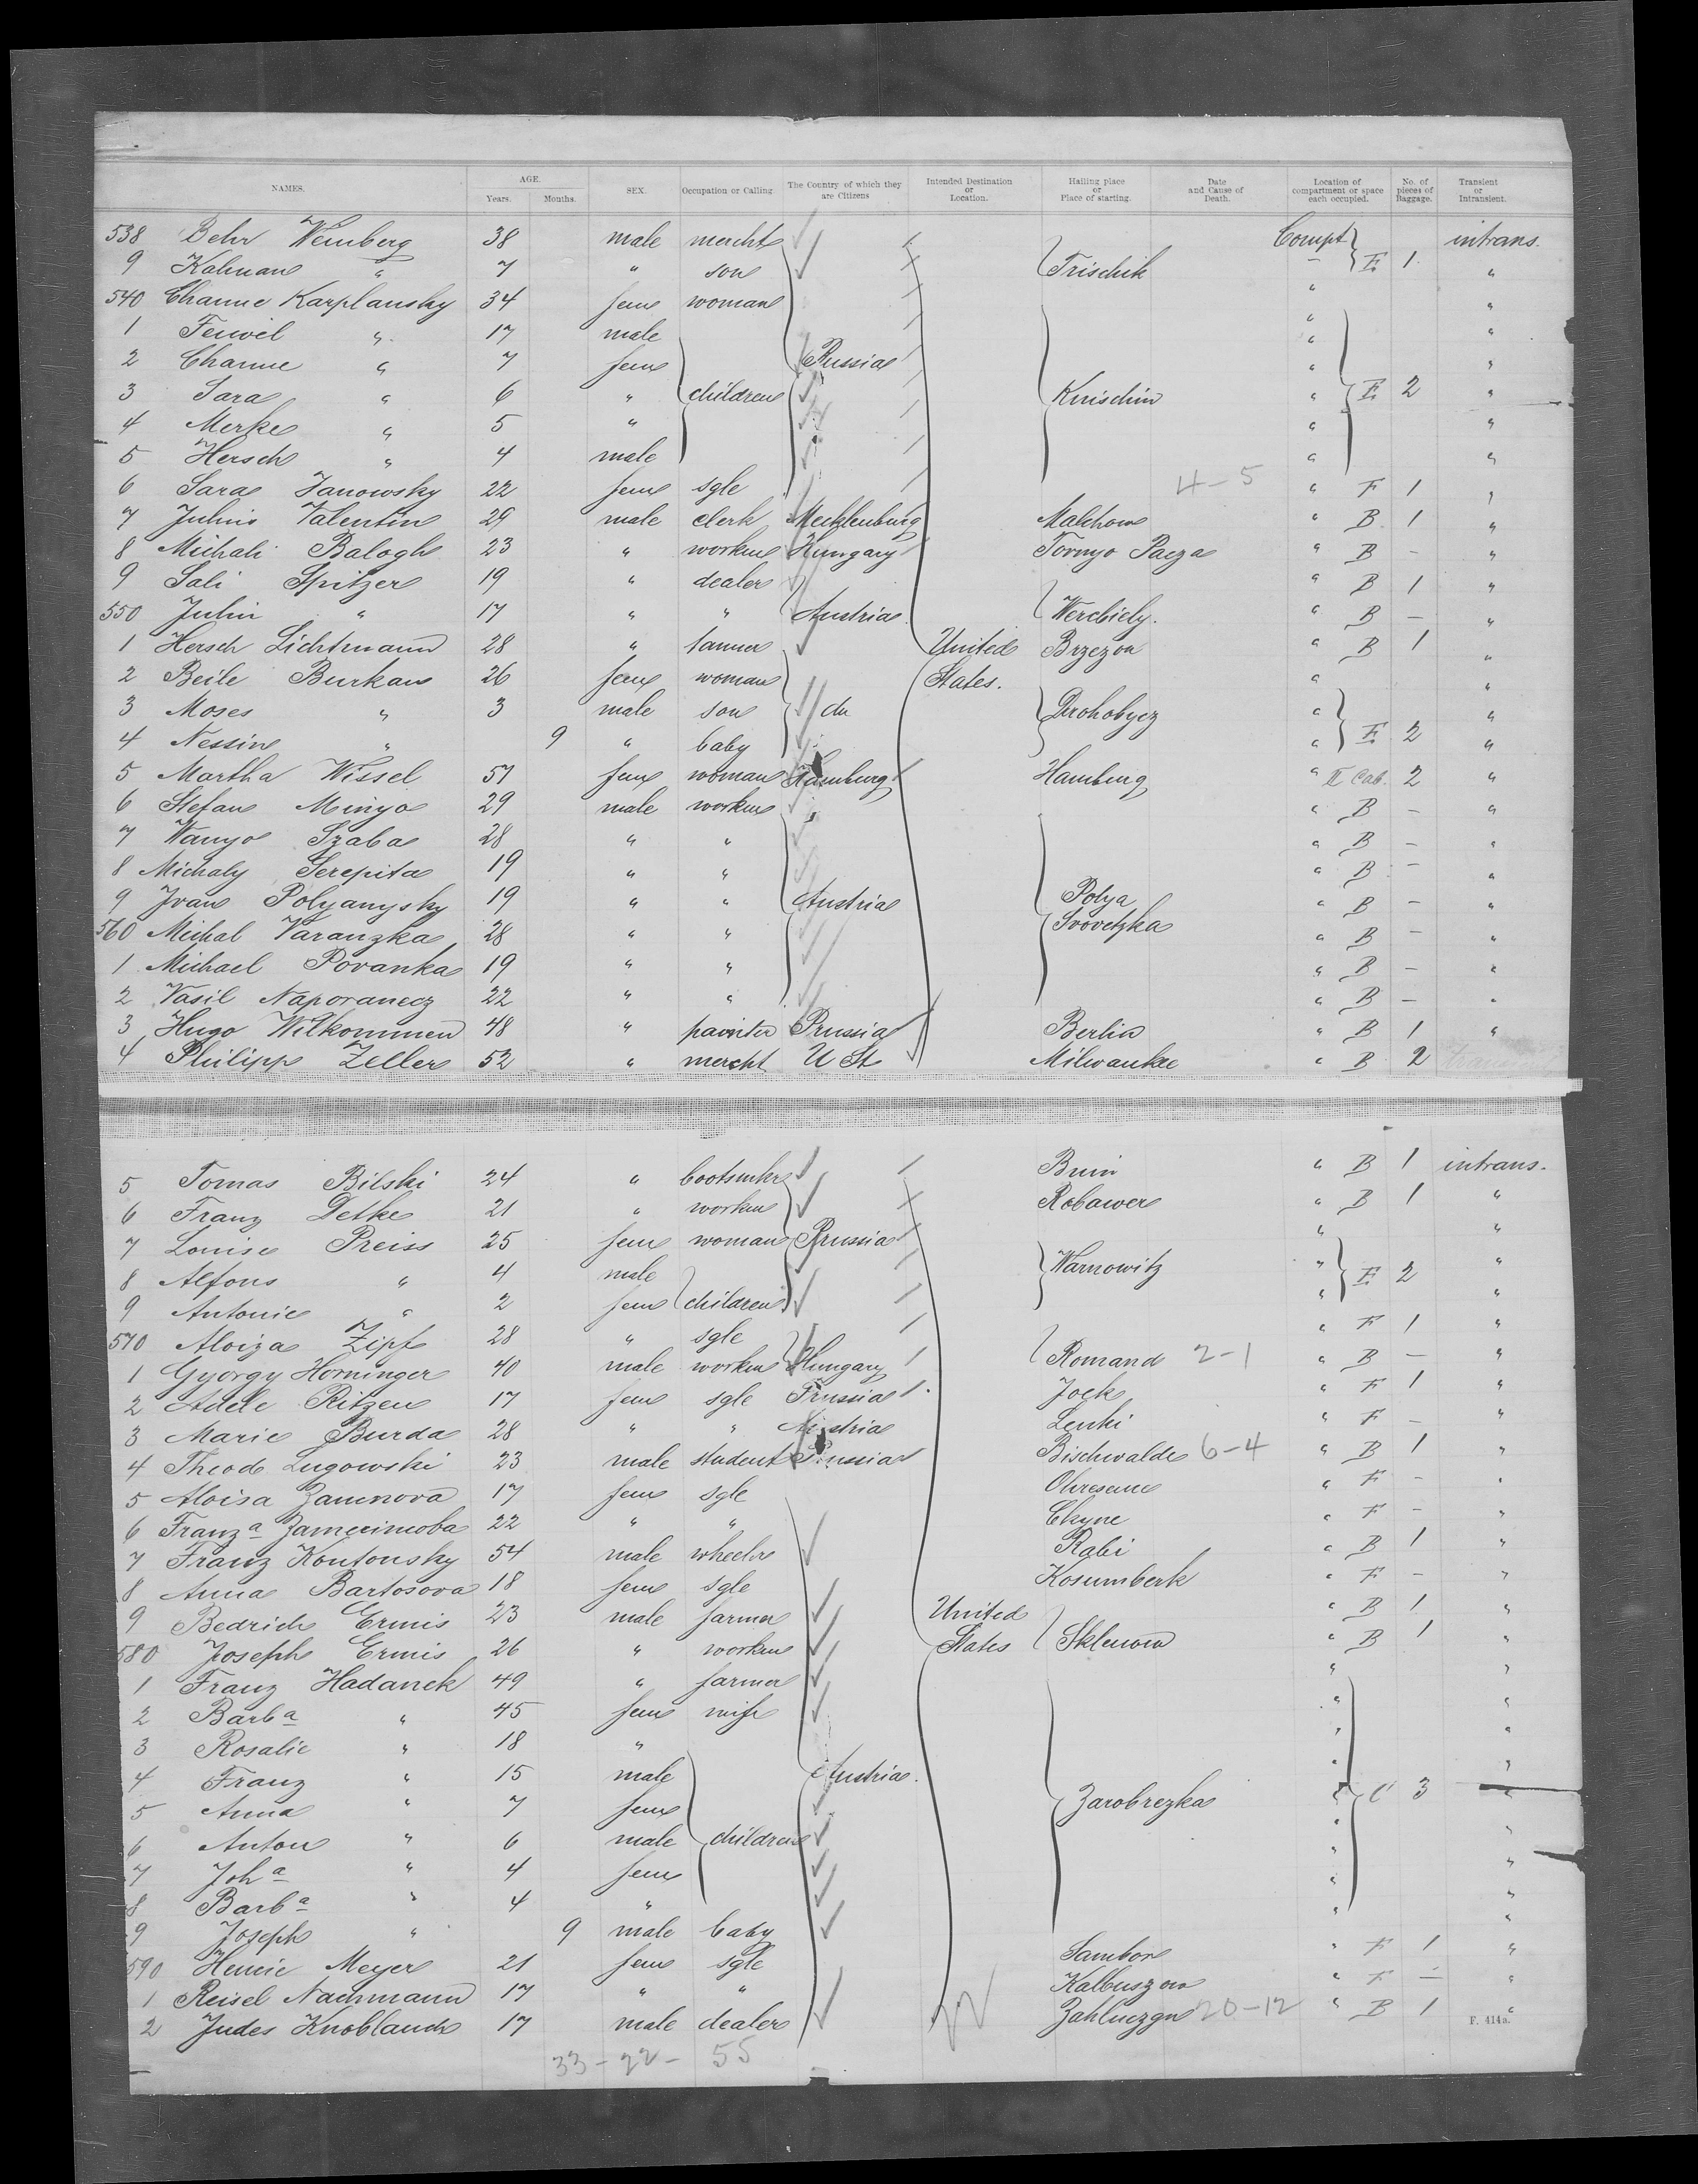 NAMES. AGE. Years. Months. SEX. Occupation or Calling The Country of which they are Citizens Intended Destination or Location. Hailing place or Place of starting. Date and Cause of Death. Location of compartment or space each occupied. No. of pieces of Baggage. Transient or Intransient.
538 Behr Weinberg 38 male mercht Compt E 1 intrans.
9 Kalman " 7 " son Trischik "
540 Channe Karplansky 34 fem woman " "
1 Feiwel " 17 male " "
2 Channe " 7 fem Russia " "
3 Sara " 6 " children Knischin " E 2 "
4 Merke " 5 " " "
5 Hersch " 4 male " "
6 Sara Janowsky 22 fem sgle 4-5 " F 1 "
7 Julius Valentin 29 male clerk Mecklenburg Malchow " B 1 "
8 Michali Balogh 23 " workm Hungary Tornyo Pacza " B - "
9 Sali Spitzer 19 " dealer " B 1 "
550 Julin " 17 " " Austria Werebiely. " B - "
1 Hersch Lichtmann 28 " tanner United Brzezon " B 1 "
2 Beile Burkan 26 fem woman States. " "
3 Moses " 3 male son do Drohobycz " "
4 Nessin " 9 " baby " E 2 "
5 Martha Wissel 57 fem woman Hamburg Hamburg " II Cab. 2 "
6 Stefan Minyo 29 male workm " B - "
7 Wanyo Szaba 28 " " " B - "
8 Michaly Serepita 19 " " " B - "
9 Ivan Polyanysky 19 " " Austria Polya " B - "
560 Michal Varanzka 28 " " Svovetzka " B - "
1 Michael Povanka 19 " " " B - "
2 Vasil Naporanecz 22 " " " B - "
3 Hugo Wilkommen 48 " painter Prussia Berlin " B 1 "
4 Philipp Zeller 52 " mercht U St Milwaukee " B 2 trans
5 Tomas Bilski 24 " bootsmkr Bnin " B 1 intrans.
6 Franz Detke 21 " workm Robawer " B 1 "
7 Louise Preiss 25 fem woman Prussia " "
8 Alfons " 4 male Warnowitz " E 2 "
9 Antonie " 2 fem children " "
570 Aloiza Zipf 28 " sgle " F 1 "
1 Gyorgy Horninger 40 male workm Hungary Romand 2-1 " B - "
2 Adele Ritzen 17 fem sgle Prussia Jock " F 1 "
3 Marie Burda 28 " " Austria Lenki " F - "
4 Theod. Lugowski 23 male student Prussia Bischwalde 6-4 " B 1 "
5 Aloisa Zamnova 17 fem sgle " F - "
6 Franza 22 " " Chyne " F - "
7 Franz Koutonsky 54 male wheeler Rabi " B 1 "
8 Anna Bartosova 18 fem sgle Kosumberk " F - "
9 Bedrich Ermis 23 male farmer United " B 1 "
580 Joseph Ermis 26 " workm States Sklenow " B 1 "
1 Franz Hadanek 49 " farmer " "
2 Barba " 45 fem wife " "
3 Rosalie " 18 " " "
4 Franz " 15 male Austria. " "
5 Anna " 7 fem Zarobrezka " C 3 "
6 Anton " 6 male children " "
7 Joha " 4 fem " "
8 Barba " 4 " " "
9 Joseph " 9 male baby " "
590 Hennie Meyer 21 fem sgle Sambor " F 1 "
1 Reisel Nachmann 17 " " Kalbuszow " F - "
2 Judes Knoblauch 17 male dealer Zahluczgn 20-12 " B 1 "
F. 414a.
33-22- 55